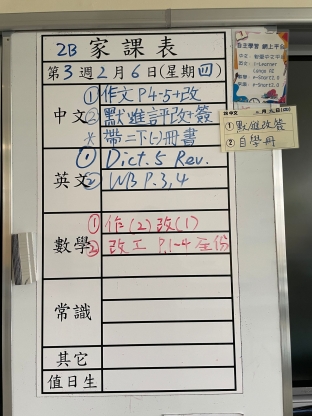 2B 家課表
第3週2月6日(星期四)
中文
①作文P4-5+改
②默進評改+簽
*帶二下(一)冊書
英文
①Dict.5 Rev.
②WB P.3,4
數學
①作(2)改(1)
②改工 P.1-4 全份
常識
其它
值日生
自主學習 網上平台
中文
①默進改簽
②自學冊